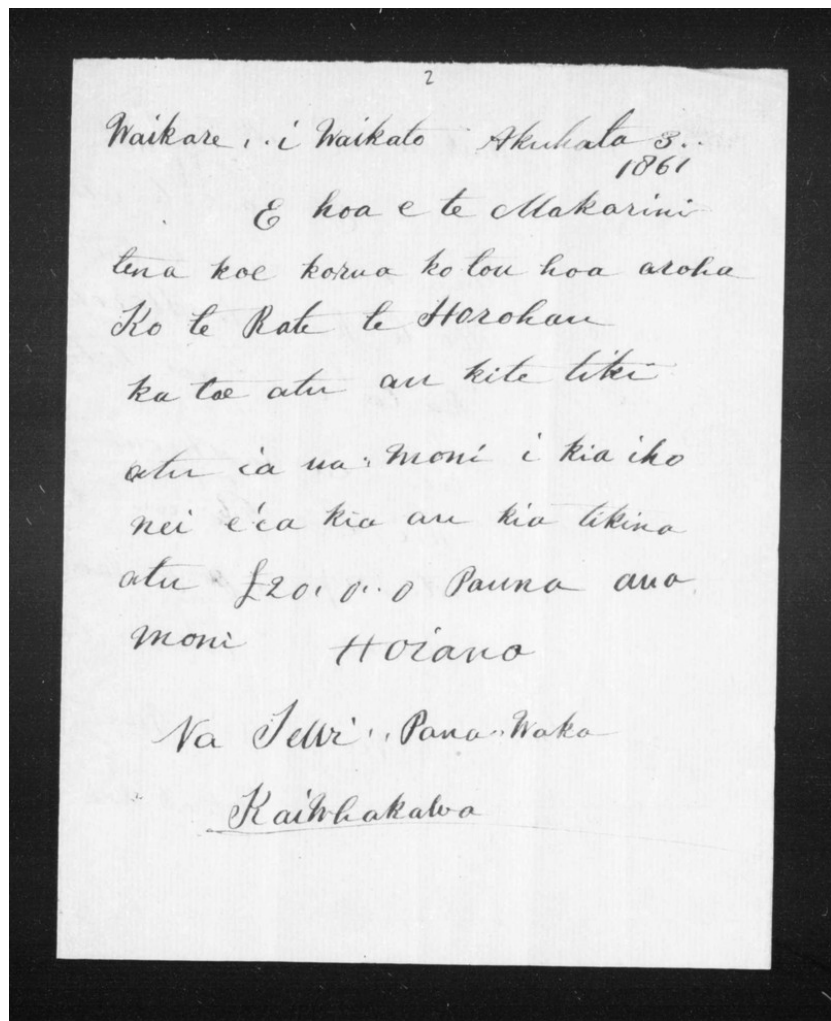 2
Waikare , . i Waikato Akuhata 3 . .
1861
E hoa e te Makarini
tena koe korua ko tou hoa aroha
Ko te Rate te Horohau
ka toe atu au kite tiki
atu ia na . moni i kia iho
nei e ia kia au kia tikina
atu £20 . 0 . 0 Pauna ana
moni Hoiano
Na . . Pana . . Waka
KaiWhakaWa